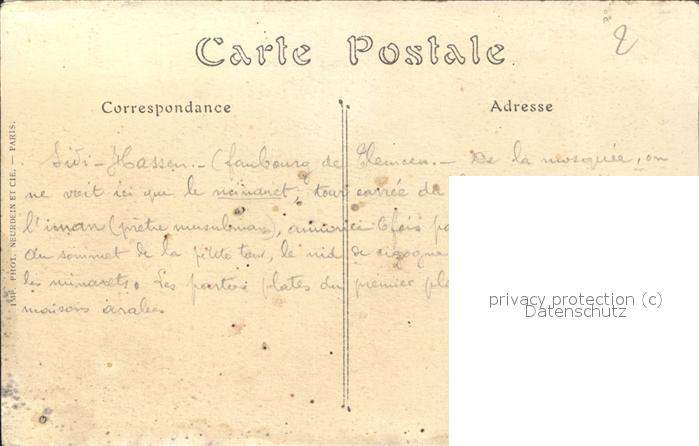 2
Carte Postale
Correspondance
Adresse
Sidi-Hassen. - (faubourg de Tlemcen. - De la mosquée, on
ne voit ici que le minaret, tour carrée du
l'iman (prêtre musulman), annonce 6 fois pa
Au sommet de la petite tour, le nid de cigogne
les minarets. Les parties plates du premier pla
maisons arabes
IMP. PHOT. NEURDEIN ET CIE. — PARIS.
privacy protection (c)
Datenschutz